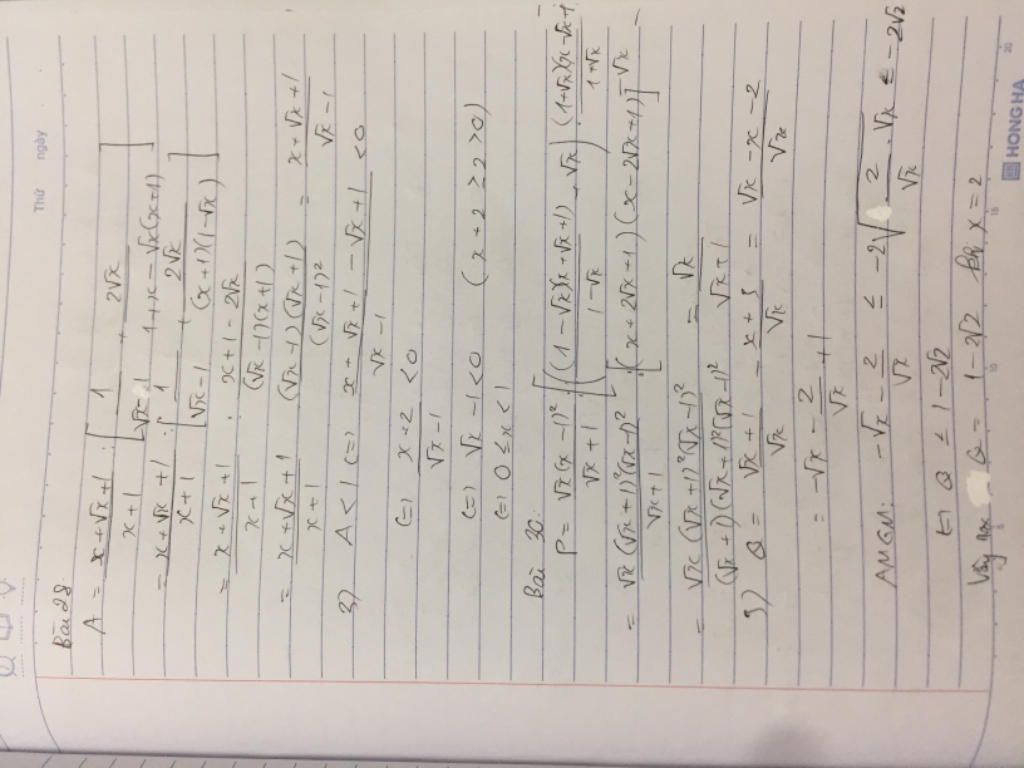 Thứ ngày
Bài 28.
A = (x+√x+1)/(x+1) : [1/(√x-1) + 2√x/(1+x-√x(x+1))]
= (x+√x+1)/(x+1) : [1/(√x-1) + 2√x/((x+1)(1-√x))]
= (x+√x+1)/(x+1) : (x+1-2√x)/((√x-1)(x+1))
= (x+√x+1)/(x+1) (√x-1)(√x+1)/(√x-1)² = (x+√x+1)/(√x-1)
3) A < 1 (=) (x+√x+1-√x+1)/(√x-1) < 0
(=) (x+2)/(√x-1) < 0
(=) √x-1 < 0 (x+2 ≥ 2 > 0)
(=) 0 ≤ x < 1
Bài 30:
P = √x(x-1)²/(√x+1) : [((1-√x)(x+√x+1)/(1-√x) + √x)((1+√x)(x-√x+1)/(1+√x) - √x)]
= √x(√x+1)²(√x-1)²/(√x+1) : [(x+2√x+1)(x-2√x+1)]
= √x(√x+1)²(√x-1)²/((√x+1)(√x+1)²(√x-1)²) = √x/(√x+1)
3) Q = (√x+1)/√x - (x+3)/√x = (√x-x-2)/√x
= -√x - 2/√x + 1
AMGM: -√x - 2/√x ≤ -2√(2/√x . √x) ≤ -2√2
(=) Q ≤ 1-2√2
Vậy max Q = 1-2√2 khi x = 2
HONG HA